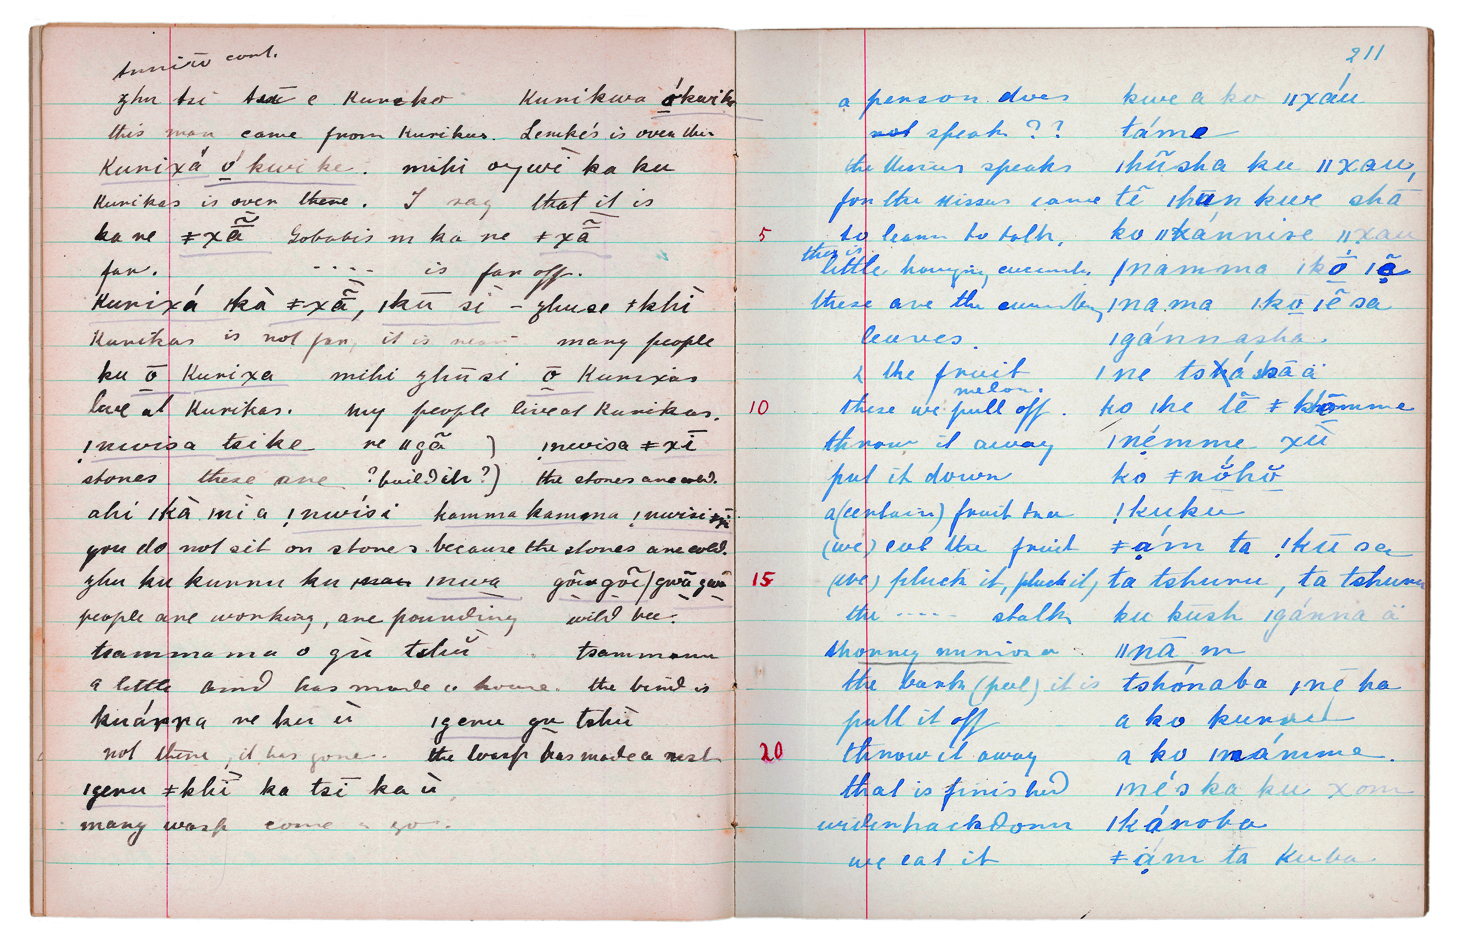 cont.
zhu tsi e Kuneko Kunikwa ókwike
this man came from Kurikus. is over there
Kunixá ó kwi ke. mihi oywi ka ku
Kunikas is over there. I say that it is
ka ne ǂxã Gobabis m ka ne ǂxã
far. .... is far off.
Kunixá ıkà ǂxã, ıkū sì - zhuse ǂkhì
Kunikas is not far, it is near many people
ku ō Kunixa mihi zhūsi ō Kunixas
live at Kunikas. my people live at Kunikas.
!nwisa tsike re ǁgã ) !nwisa ǂxī
stones these are ?build ik?) the stones are cold.
ahi ıkà ınì a !nwísi kamma kamma !nwisi ǂxi
you do not sit on stones because the stones are cold.
zhu ku kunnu ku ınwa gõı gõı/gwã gwã
people are working, are pounding wild bee.
tsammama o gù tshù tsammama
a little bird has made a house. the bird is
kuánna ne ku ù ıgenu gu tshù
not there, it has gone. the wasp has made a nest
ıgenu ǂkhì ka tsī ka ù
many wasp come & go.
211
a person does kwe a ko ǁxáu
not speak ?? táme
the Nurus speaks ıhũsha ku ǁxau,
for the Missus came tē ıhun kwe shā
5 to learn to talk, ko ǁkánnise ǁxau
there is
little hanging cucumb. ınamma ıkō ıẽ
these are the cucumber ınama ıkō ıẽ sa
leaves. ıgánnasha
& the fruit ıne tsxá ä
melon.
10 these we pull off. ko ıhe tē ǂkhōmme
throw it away ınémme xù
put it down ko ǂnŏhŏ
a (certain) fruit tree !kuku
(we) eat the fruit ǂạ́m ta !kū sa
15 (we) pluck it, pluck it, ta tshunu, ta tshunu
the .... stalk ku kush ıgánna ä
ǁnā m
the bark (peel) it is tshónaba ıné ha
pull it off a ko kunu
20 throw it away a ko ınámme.
that is finished ınés ka ku xom
ıkánoba
we eat it ǂạ́m ta kuba